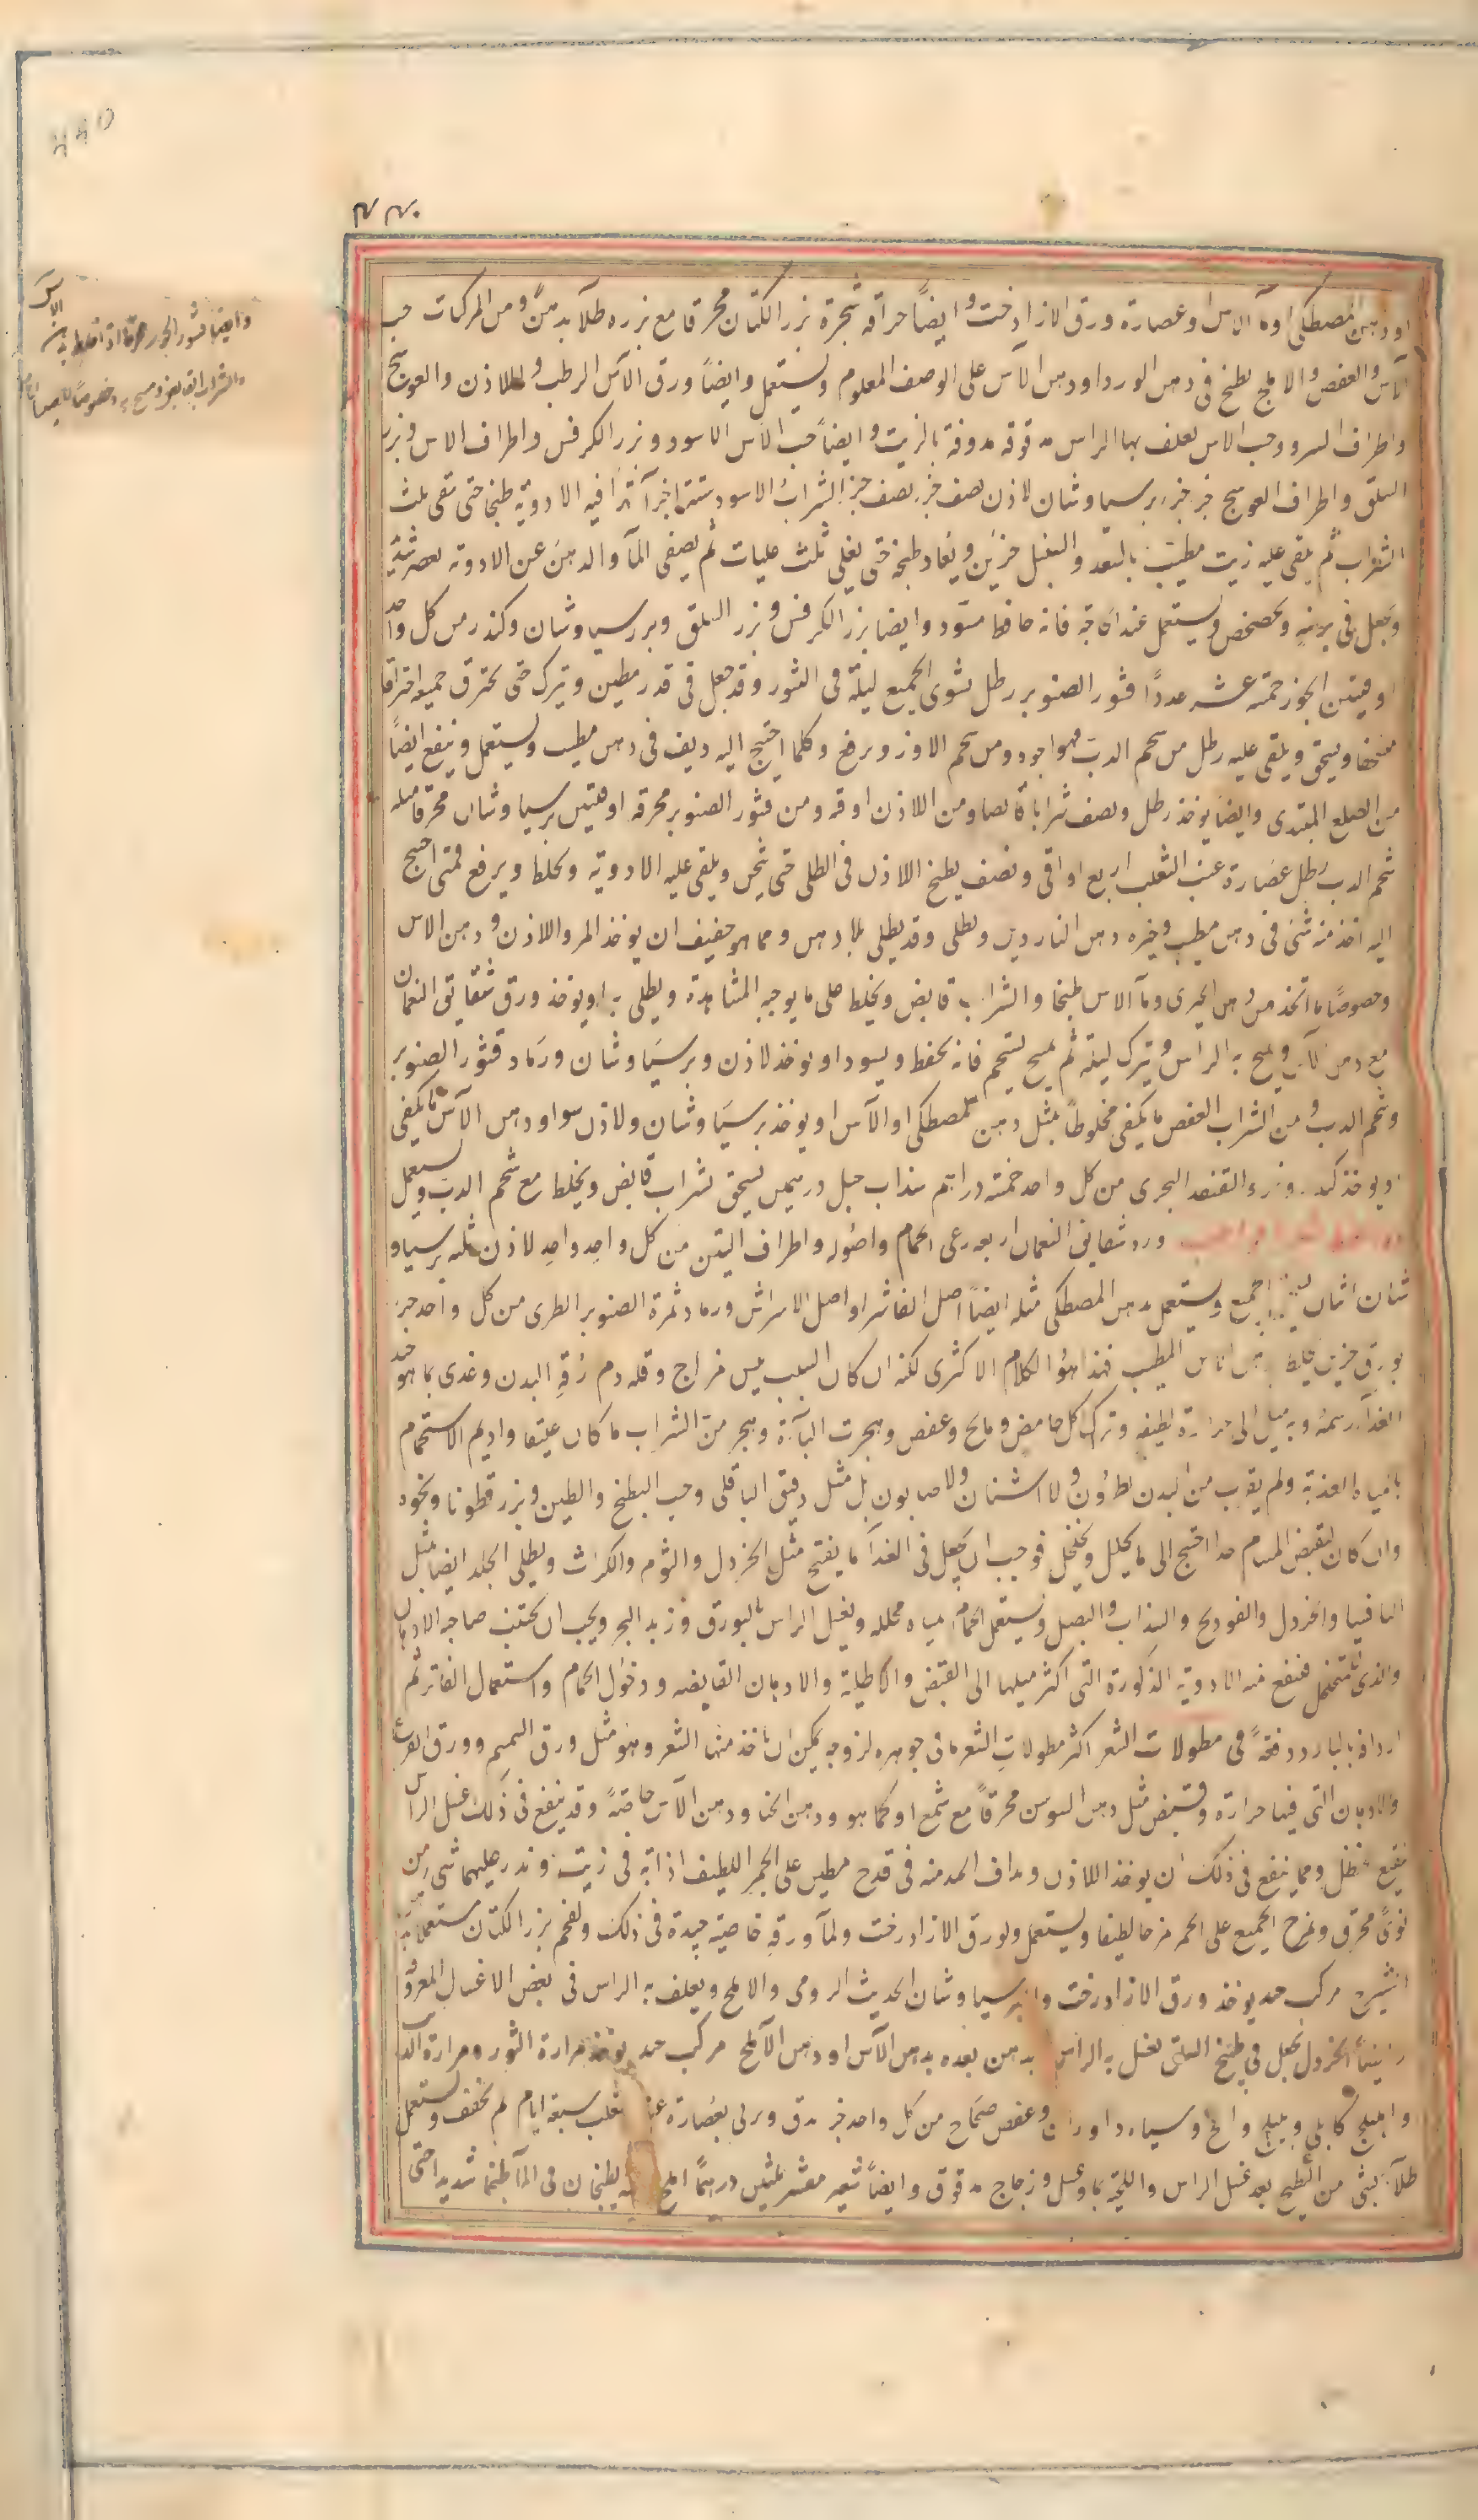 او دهن المصطكى او ماء الاس او عصارة ورق الازادرخت وايضاً حراقة شجرة بزر الكتان محرقا مع بزره طلاء بدهن ومن المركبات حب
الآس والعفص والاملج يطبخ فى دهن الورد او دهن الآس على الوصف المعلوم ويستعمل وايضاً ورق الآس الرطب واللاذن والعوسج
واطراف السرو وحب الاس يغلف بها الراس مدقوقة مدوفة بالزيت وايضاً حب الآس الاسود وبزر الكرفس واطراف الاس وبزر
السلق واطراف العوسج جزء جزء برسياوشان لاذن نصف جزء نصف جزء الشراب الاسود ستة اجزاء فيه الادوية طبخا حتى يبقى ثلث
الشراب ثم يلقى عليه زيت مطيب بالسعد والسنبل جزئين ويعاد طبخه حتى يغلى ثلث غليات ثم يصفى الماء والدهن عن الادوية بعصر شديد
ويجعل فى برنية ويخضخض ويستعمل عند الحاجة فانه حافظ مسود وايضا بزر الكرفس وبزر السلق وبرسياوشان وكندر من كل واحد
اوقيتين الجوز خمسة عشر عدداً قشور الصنوبر رطل يشوى الجميع ليلة فى التنور وقد جعل فى قدر مطين ويترك حتى يحترق جميعه احتراقا
ويسحق ويلقى عليه رطل من شحم الدب فهو اجود ومن شحم الاوز ويرفع وكلما احتيج اليه ديف فى دهن مطيب ويستعمل وينفع ايضاً
من الصلع المبتدى وايضا يوخذ رطل ونصف شرابا قابضا ومن اللاذن اوقية ومن قشور الصنوبر محرقة اوقيتين برسياوشان محرقا مثله
شحم الدب رطل عصارة عنب الثعلب اربع اواقى ونصف يطبخ اللاذن فى الطلى حتى يثخن ويلقى عليه الادوية ويخلط ويرفع فمتى احتيج
اليه اخذ منه شئ فى دهن مطيب وخيره دهن الناردين وطلى وقد يطلى بلا دهن ومما هو خفيف ان يوخذ المر واللاذن ودهن الاس
وخصوصاً ما اتخذ من دهن الخيرى وماء الاس طبخا والشراب قابض ويخلط على ما يوجبه المشاهدة ويطلى به او يوخذ ورق شقائق النعمان
مع دهن الآس ويمسح به الراس ويترك ليلة ثم يستحم فانه يحفظ ويسود او يوخذ لاذن وبرسياوشان ورماد قشور الصنوبر
وشحم الدب ومن الشراب العفص ما يكفى مخلوطاً بمثل دهن المصطكى او الآس او يوخذ برسياوشان ولاذن سوا ودهن الآس ما يكفى
او يوخذ كندر وخرء القنفذ البحرى من كل واحد خمسة دراهم سذاب جبلى درهمين يسحق بشراب قابض ويخلط مع شحم الدب ويستعمل
ورد شقائق النعمان اربعة رعى الحمام واصوله واطراف التين من كل واحد واحد لاذن ثلثه برسياو
شان اثمان الجميع ويستعمل بدهن المصطكى مثله ايضاً اصل الفاشرا واصل الاسراش ورماد ثمرة الصنوبر الطرى من كل واحد جزء
بورق جزئين يخلط بدهن الاس المطيب فهذا هو الكلام الاكثرى لكنه ان كان السبب يبس مزاج وقلة دم رفه البدن وغذى بما هو جيد
الغذاء دسمه وبه ميل الى حرارة لطيفة وترك كل حامض ومالح وعفص وهجرت الباءة وهجر من الشراب ما كان عتيقا واديم الاستحمام
بالمياه العذبة ولم يقرب من البدن نطرون ولا اشنان ولا صابون بل مثل دقيق الباقلى وحب البطيخ والطين وبزر قطونا ونحوه
وان كان تقبض المسام جدا احتيج الى ما يحلل ويخلخل فوجب ان يجعل فى الغذاء ما يفتح مثل الخردل والثوم والكراث ويطلى الجلد ايضا بمثل
الثافسيا والخردل والفودنج والسذاب والبصل ويستعمل الحمام بمياه محللة ويغسل الراس بالبورق وزبد البحر ويجب ان يجتنب صاحبه الادهان
والذى للتخلخل فينفع منه الادوية المذكورة التى اكثر ميلها الى القبض والاطلية والادهان القابضة ودخول الحمام واستعمال الفاتر ثم
اردافه بالبارد دفعةً فى مطولات الشعر اكثر مطولات الشعر ما فى جوهره لزوجة يمكن ان ياخذ منها الشعر وهو مثل ورق السمسم وورق القرع
والادهان التى فيها حرارة وقبض مثل دهن السوسن محرقاً مع شمع او كما هو ودهن الحنا ودهن الآس خاصةً وقد ينفع فى ذلك غسل الراس
بنقيع الحنظل ومما ينفع فى ذلك ان يوخذ اللاذن ويداف المد منه فى قدح مطين على الجمر اللطيف اذابة فى زيت ويذر عليهما شئ من
نوى محرق ويمزج الجميع على الجمر مزجا لطيفا ويستعمل ولورق الازادرخت ولماء ورقه خاصية جيدة فى ذلك ولفحم بزر الكتان مستعملا به
الشيرج مركب جيد يوخذ ورق الازادرخت والبرسياوشان الحديث الرومى والاملج ويغلف به الراس فى بعض الاغسال المعروفة
الخردل يجعل فى طبيخ السلق يغسل به الراس يدهن بعده بدهن الآس او دهن الاملج مركب جيد يوخذ مرارة الثور ومرارة الذئب
واهليلج كابلى وبليلج واملج وسياه داوران وعفص صحاح من كل واحد جزء يدق ويربى بعصارة عنب الثعلب سبعة ايام ثم يجفف ويستعمل
طلاء بشئ من الطبيخ بعد غسل الراس واللحية بماء وعسل وزجاج مدقوق وايضاً شعير مقشر ثلثين درهماً املج يطبخان فى الماء طبخا شديدا حتى
وايضاً قشور الجوز محرقا اذا خلط بدهن الآس
والشراب القابض ومسح به وخصوصاً للصبيان